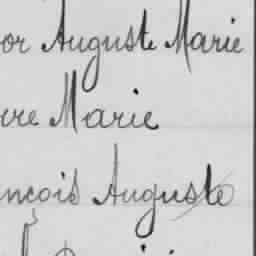 or Auguste Marie
re Marie
ncois Auguste